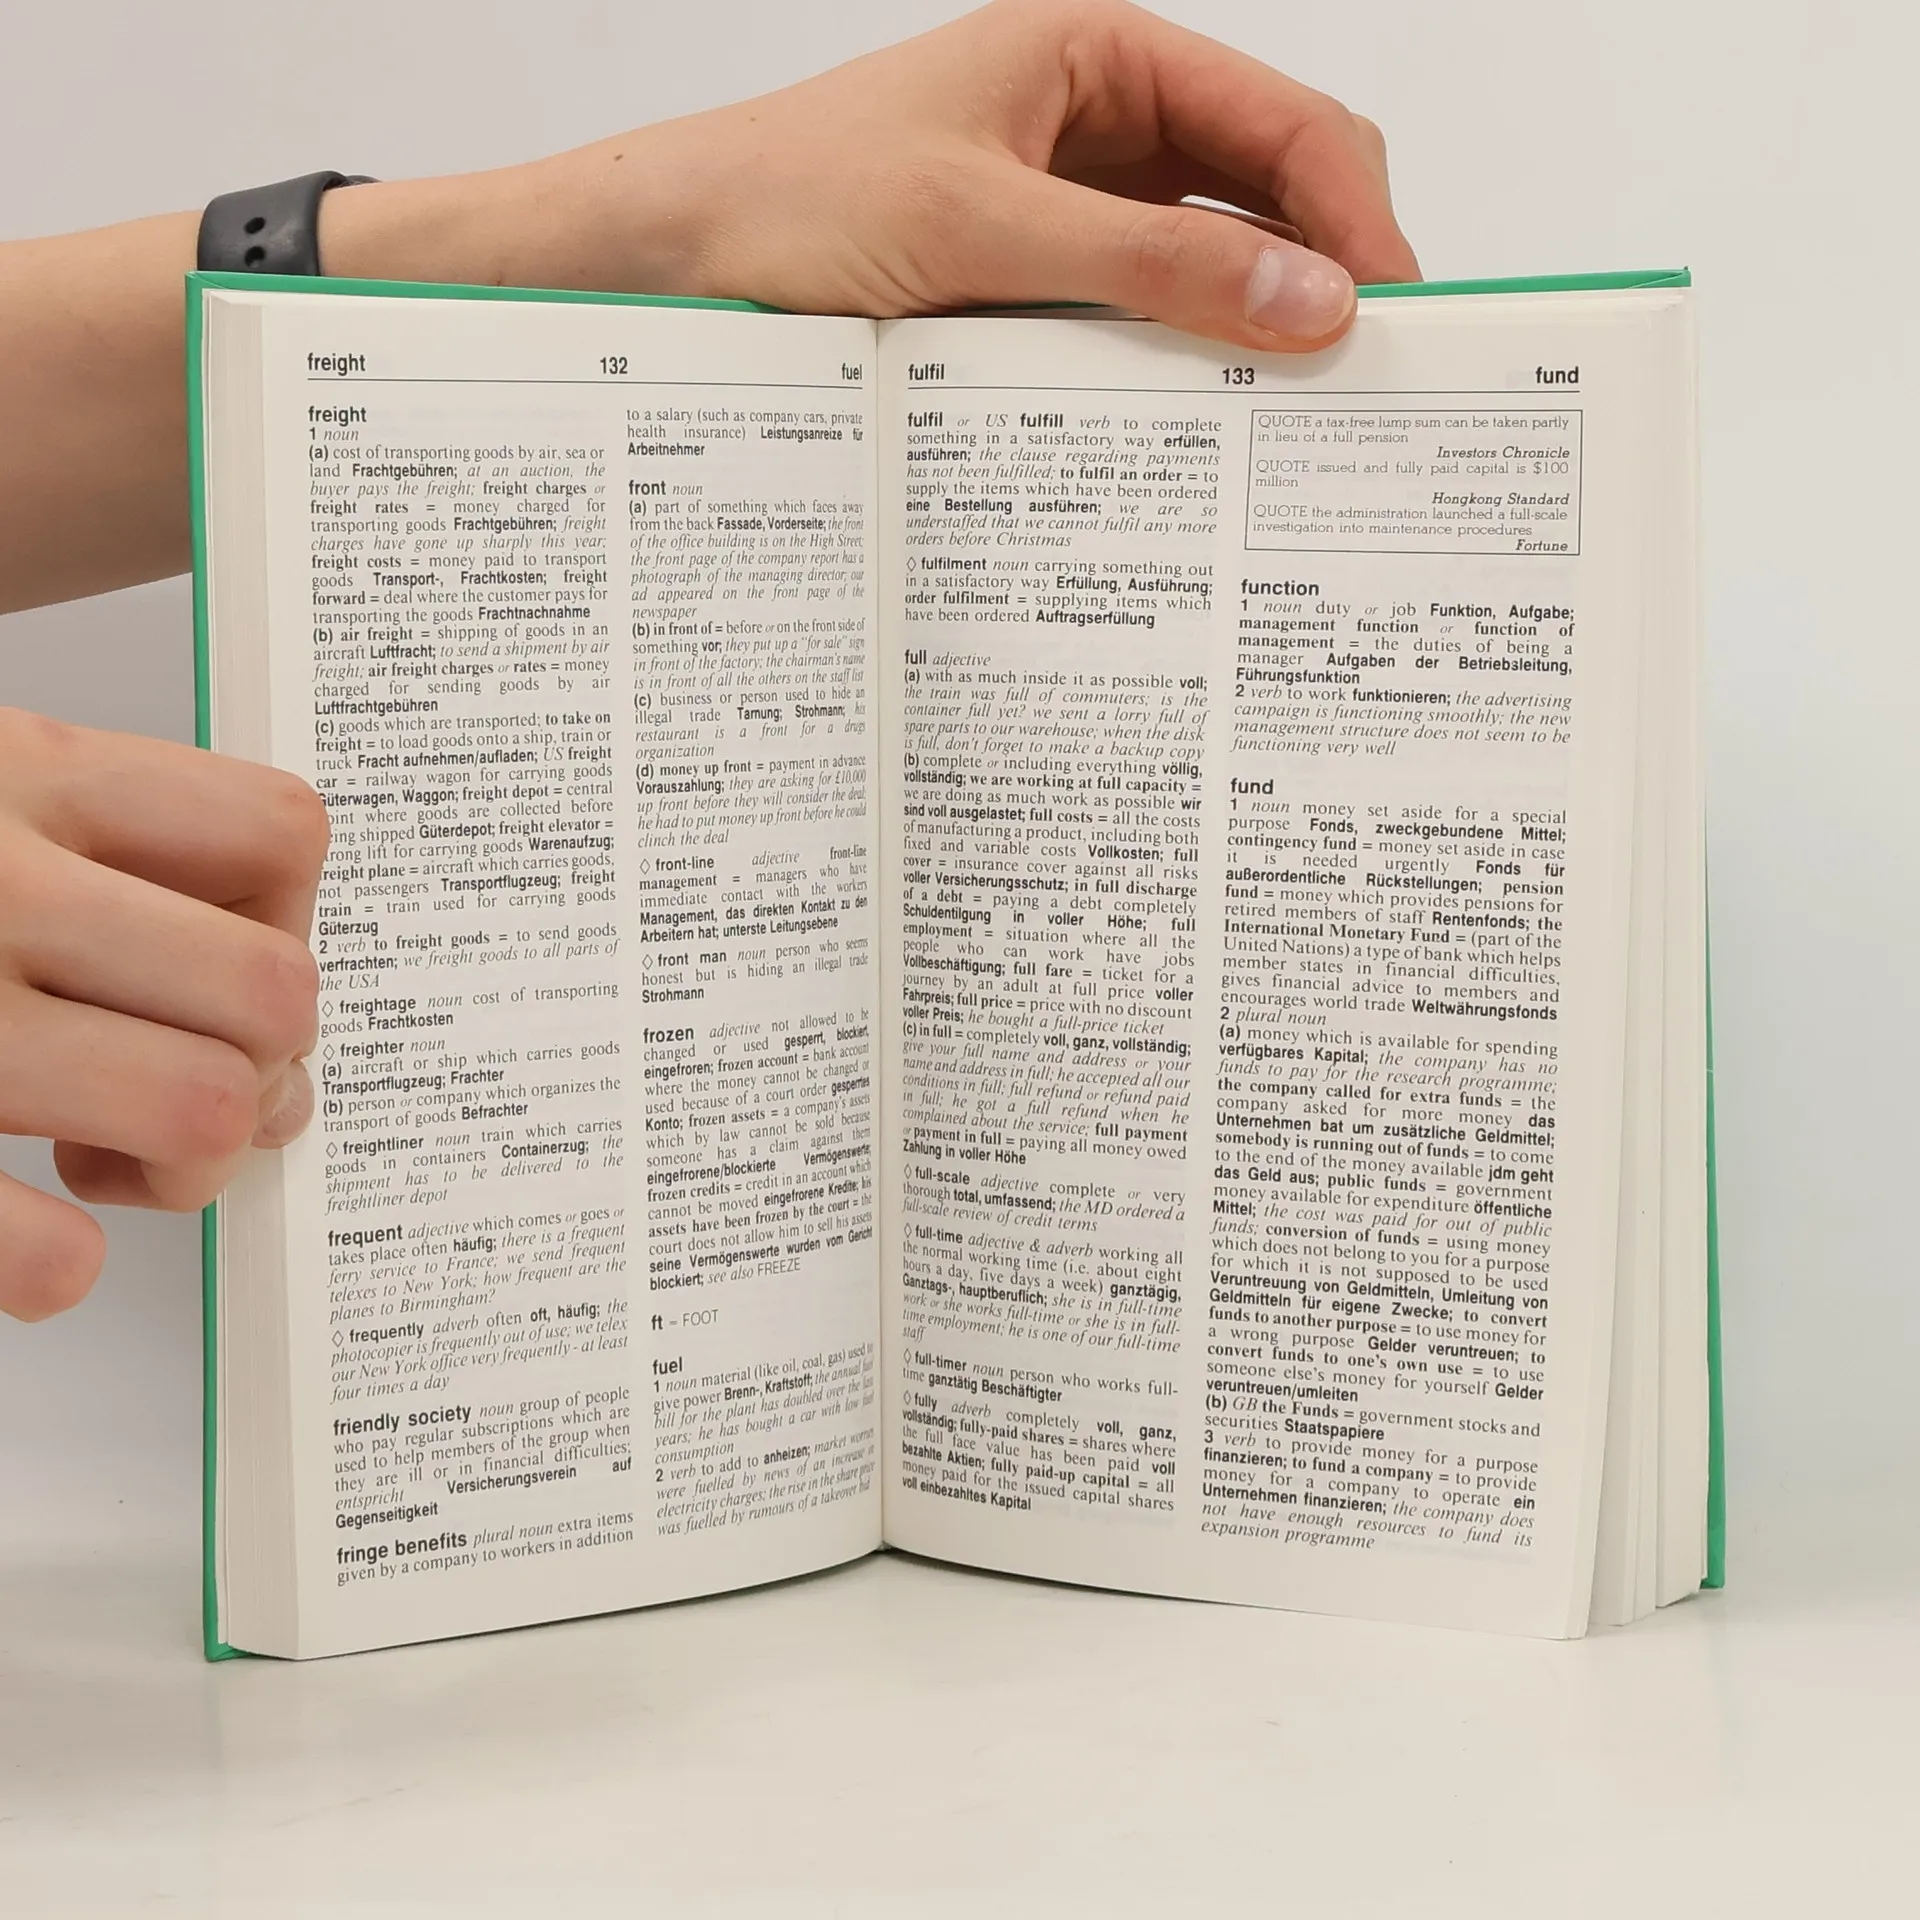 freight 132 fuel
freight
1 noun
(a) cost of transporting goods by air, sea or
land Frachtgebühren; at an auction, the
buyer pays the freight; freight charges or
freight rates = money charged for
transporting goods Frachtgebühren; freight
charges have gone up sharply this year;
freight costs = money paid to transport
goods Transport-, Frachtkosten; freight
forward = deal where the customer pays for
transporting the goods Frachtnachnahme
(b) air freight = shipping of goods in an
aircraft Luftfracht; to send a shipment by air
freight; air freight charges or rates = money
charged for sending goods by air
Luftfrachtgebühren
(c) goods which are transported; to take on
freight = to load goods onto a ship, train or
truck Fracht aufnehmen/aufladen; US freight
car = railway wagon for carrying goods
Güterwagen, Waggon; freight depot = central
where goods are collected before
shipped Güterdepot; freight elevator =
lift for carrying goods Warenaufzug;
freight plane = aircraft which carries goods,
not passengers Transportflugzeug; freight
train = train used for carrying goods
Güterzug
2 verb to freight goods = to send goods
verfrachten; we freight goods to all parts of
the USA
◊ freightage noun cost of transporting
goods Frachtkosten
◊ freighter noun
(a) aircraft or ship which carries goods
Transportflugzeug; Frachter
(b) person or company which organizes the
transport of goods Befrachter
◊ freightliner noun train which carries
goods in containers Containerzug; the
shipment has to be delivered to the
freightliner depot
frequent adjective which comes or goes or
takes place often häufig; there is a frequent
ferry service to France; we send frequent
telexes to New York; how frequent are the
planes to Birmingham?
◊ frequently adverb often oft, häufig; the
photocopier is frequently out of use; we telex
our New York office very frequently - at least
four times a day
friendly society noun group of people
who pay regular subscriptions which are
used to help members of the group when
they are ill or in financial difficulties;
entspricht Versicherungsverein auf
Gegenseitigkeit
fringe benefits plural noun extra items
given by a company to workers in addition
to a salary (such as company cars, private
health insurance) Leistungsanreize für
Arbeitnehmer
front noun
(a) part of something which faces away
from the back Fassade, Vorderseite; the front
of the office building is on the High Street;
the front page of the company report has a
photograph of the managing director; our
ad appeared on the front page of the
newspaper
(b) in front of = before or on the front side of
something vor; they put up a "for sale" sign
in front of the factory; the chairman's name
is in front of all the others on the staff list
(c) business or person used to hide an
illegal trade Tarnung; Strohmann; his
restaurant is a front for a drugs
organization
(d) money up front = payment in advance
Vorauszahlung; they are asking for £10,000
up front before they will consider the deal;
he had to put money up front before he could
clinch the deal
◊ front-line adjective front-line
management = managers who have
immediate contact with the workers
Management, das direkten Kontakt zu den
Arbeitern hat; unterste Leitungsebene
◊ front man noun person who seems
honest but is hiding an illegal trade
Strohmann
frozen adjective not allowed to be
changed or used gesperrt, blockiert,
eingefroren; frozen account = bank account
where the money cannot be changed or
used because of a court order gesperrtes
Konto; frozen assets = a company's assets
which by law cannot be sold because
someone has a claim against them
eingefrorene/blockierte Vermögenswerte;
frozen credits = credit in an account which
cannot be moved eingefrorene Kredite; his
assets have been frozen by the court = the
court does not allow him to sell his assets
seine Vermögenswerte wurden vom Gericht
blockiert; see also FREEZE
ft = FOOT
fuel
1 noun material (like oil, coal, gas) used to
give power Brenn-, Kraftstoff; the annual fuel
bill for the plant has doubled over the last
years; he has bought a car with low fuel
consumption
2 verb to add to anheizen; market worries
were fuelled by news of an increase in
electricity charges; the rise in the share price
was fuelled by rumours of a takeover bid
fulfil 133 fund
fulfil or US fulfill verb to complete
something in a satisfactory way erfüllen,
ausführen; the clause regarding payments
has not been fulfilled; to fulfil an order = to
supply the items which have been ordered
eine Bestellung ausführen; we are so
understaffed that we cannot fulfil any more
orders before Christmas
◊ fulfilment noun carrying something out
in a satisfactory way Erfüllung, Ausführung;
order fulfilment = supplying items which
have been ordered Auftragserfüllung
full adjective
(a) with as much inside it as possible voll;
the train was full of commuters; is the
container full yet? we sent a lorry full of
spare parts to our warehouse; when the disk
is full, don't forget to make a backup copy
(b) complete or including everything völlig,
vollständig; we are working at full capacity =
we are doing as much work as possible wir
sind voll ausgelastet; full costs = all the costs
of manufacturing a product, including both
fixed and variable costs Vollkosten; full
cover = insurance cover against all risks
voller Versicherungsschutz; in full discharge
of a debt = paying a debt completely
Schuldentilgung in voller Höhe; full
employment = situation where all the
people who can work have jobs
Vollbeschäftigung; full fare = ticket for a
journey by an adult at full price voller
Fahrpreis; full price = price with no discount
voller Preis; he bought a full-price ticket
(c) in full = completely voll, ganz, vollständig;
give your full name and address or your
name and address in full; he accepted all our
conditions in full; full refund or refund paid
in full; he got a full refund when he
complained about the service; full payment
or payment in full = paying all money owed
Zahlung in voller Höhe
◊ full-scale adjective complete or very
thorough total, umfassend; the MD ordered a
full-scale review of credit terms
◊ full-time adjective & adverb working all
the normal working time (i.e. about eight
hours a day, five days a week) ganztägig,
Ganztags-, hauptberuflich; she is in full-time
work or she works full-time or she is in full-
time employment; he is one of our full-time
staff
◊ full-timer noun person who works full-
time ganztätig Beschäftigter
◊ fully adverb completely voll, ganz,
vollständig; fully-paid shares = shares where
the full face value has been paid voll
bezahlte Aktien; fully paid-up capital = all
money paid for the issued capital shares
voll einbezahltes Kapital
QUOTE a tax-free lump sum can be taken partly
in lieu of a full pension
Investors Chronicle
QUOTE issued and fully paid capital is $100
million
Hongkong Standard
QUOTE the administration launched a full-scale
investigation into maintenance procedures
Fortune
function
1 noun duty or job Funktion, Aufgabe;
management function or function of
management = the duties of being a
manager Aufgaben der Betriebsleitung,
Führungsfunktion
2 verb to work funktionieren; the advertising
campaign is functioning smoothly; the new
management structure does not seem to be
functioning very well
fund
1 noun money set aside for a special
purpose Fonds, zweckgebundene Mittel;
contingency fund = money set aside in case
it is needed urgently Fonds für
außerordentliche Rückstellungen; pension
fund = money which provides pensions for
retired members of staff Rentenfonds; the
International Monetary Fund = (part of the
United Nations) a type of bank which helps
member states in financial difficulties,
gives financial advice to members and
encourages world trade Weltwährungsfonds
2 plural noun
(a) money which is available for spending
verfügbares Kapital; the company has no
funds to pay for the research programme;
the company called for extra funds = the
company asked for more money das
Unternehmen bat um zusätzliche Geldmittel;
somebody is running out of funds = to come
to the end of the money available jdm geht
das Geld aus; public funds = government
money available for expenditure öffentliche
Mittel; the cost was paid for out of public
funds; conversion of funds = using money
which does not belong to you for a purpose
for which it is not supposed to be used
Veruntreuung von Geldmitteln, Umleitung von
Geldmitteln für eigene Zwecke; to convert
funds to another purpose = to use money for
a wrong purpose Gelder veruntreuen; to
convert funds to one's own use = to use
someone else's money for yourself Gelder
veruntreuen/umleiten
(b) GB the Funds = government stocks and
securities Staatspapiere
3 verb to provide money for a purpose
finanzieren; to fund a company = to provide
money for a company to operate ein
Unternehmen finanzieren; the company does
not have enough resources to fund its
expansion programme